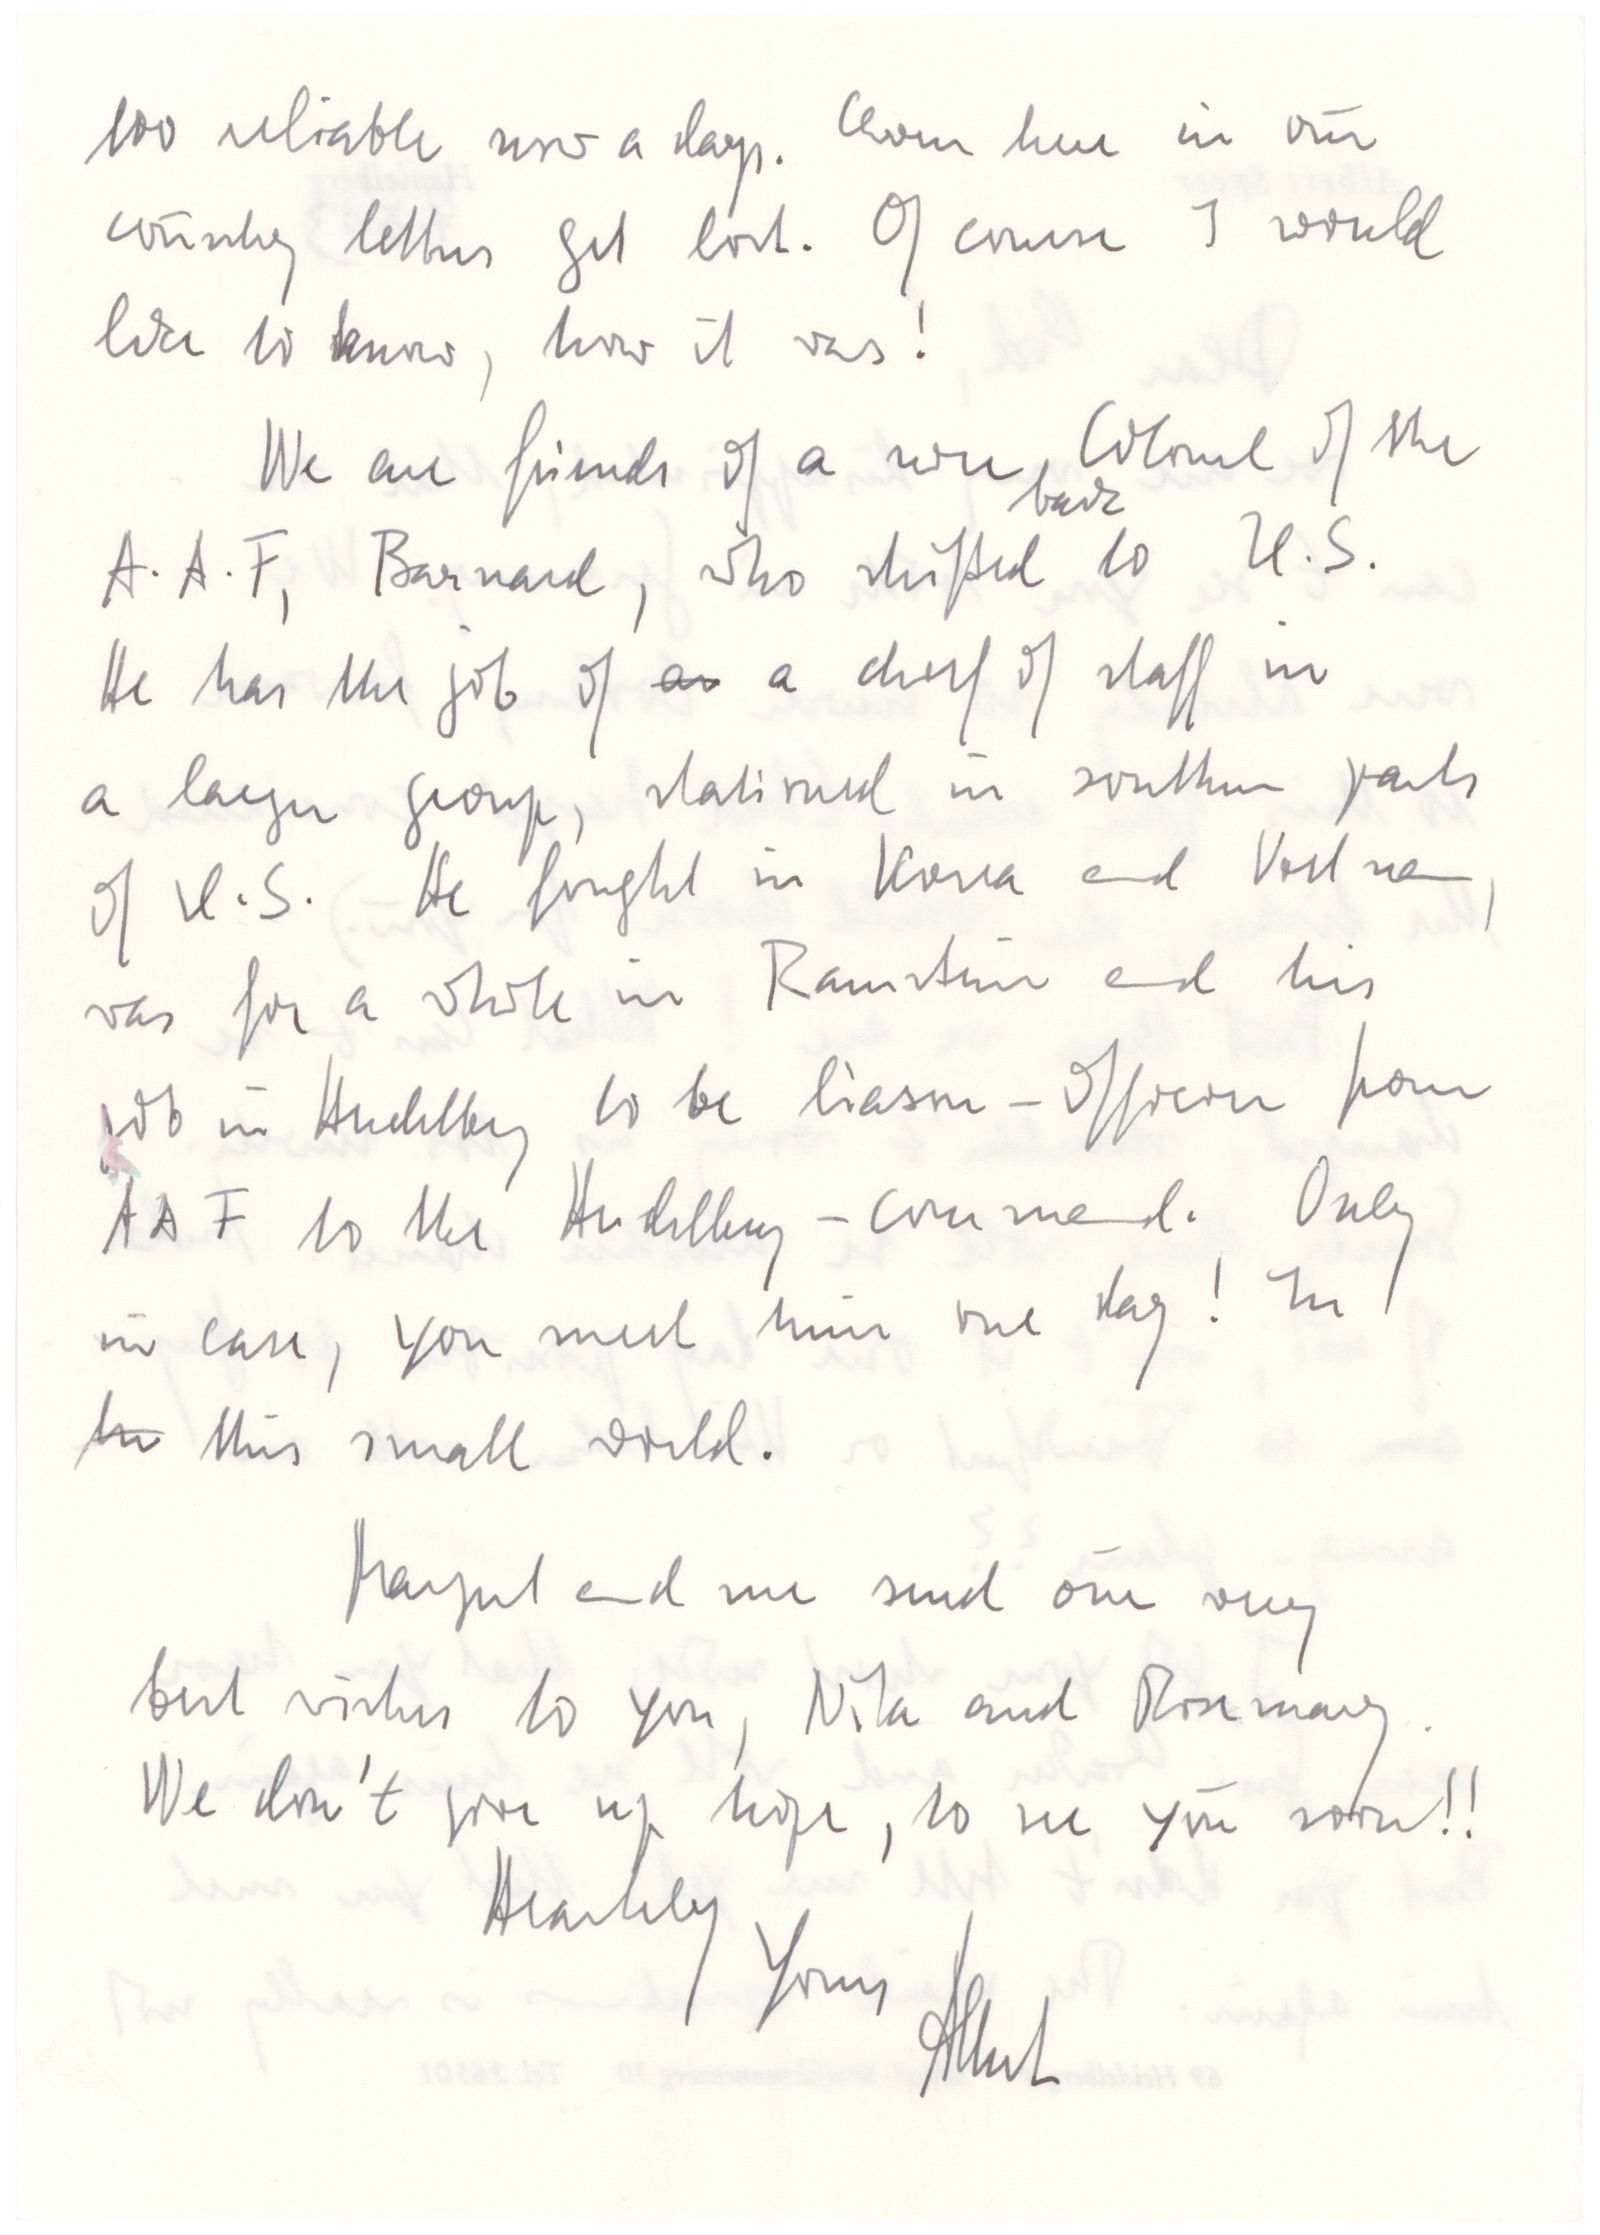 too reliable now a days. Even here in our
country letters get lost. Of course I would
like to know, how it was!
We are friends of a nice Colonel of the
A.A.F, Barnard, who shifted back to U.S.
He has the job of an a chief of staff in
a larger group, stationed in southern parts
of U.S. He fought in Korea and Vietnam,
was for a while in Ramstein and his
job in Heidelberg to be liason-officier from
AAF to the Heidelberg-command. Only
in case, you meet him one day! In
in this small world.
Margret and me send our very
best wishes to you, Nita and Rosemary.
We don't give up hope, to see you soon!!
Heartely
Yours
Albert